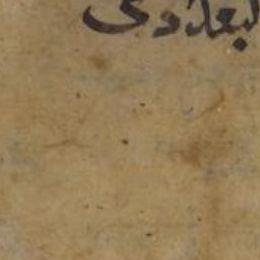 لبغدادى